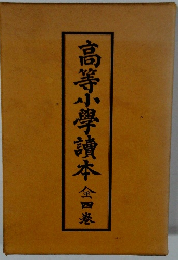 高等小學讀本 全四卷